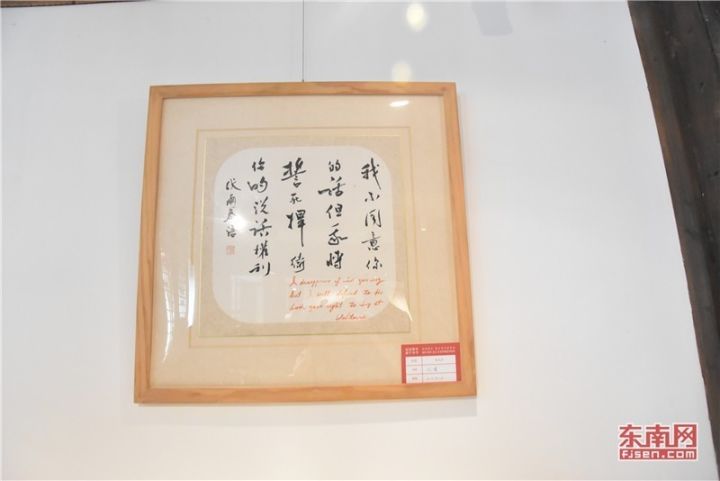 我不同意你
的话但我将
誓死捍衛
你的说话權利
I disapprove of what you say
But I will defend to the
death your right to say it
Voltaire
东南网
FJSEN.COM